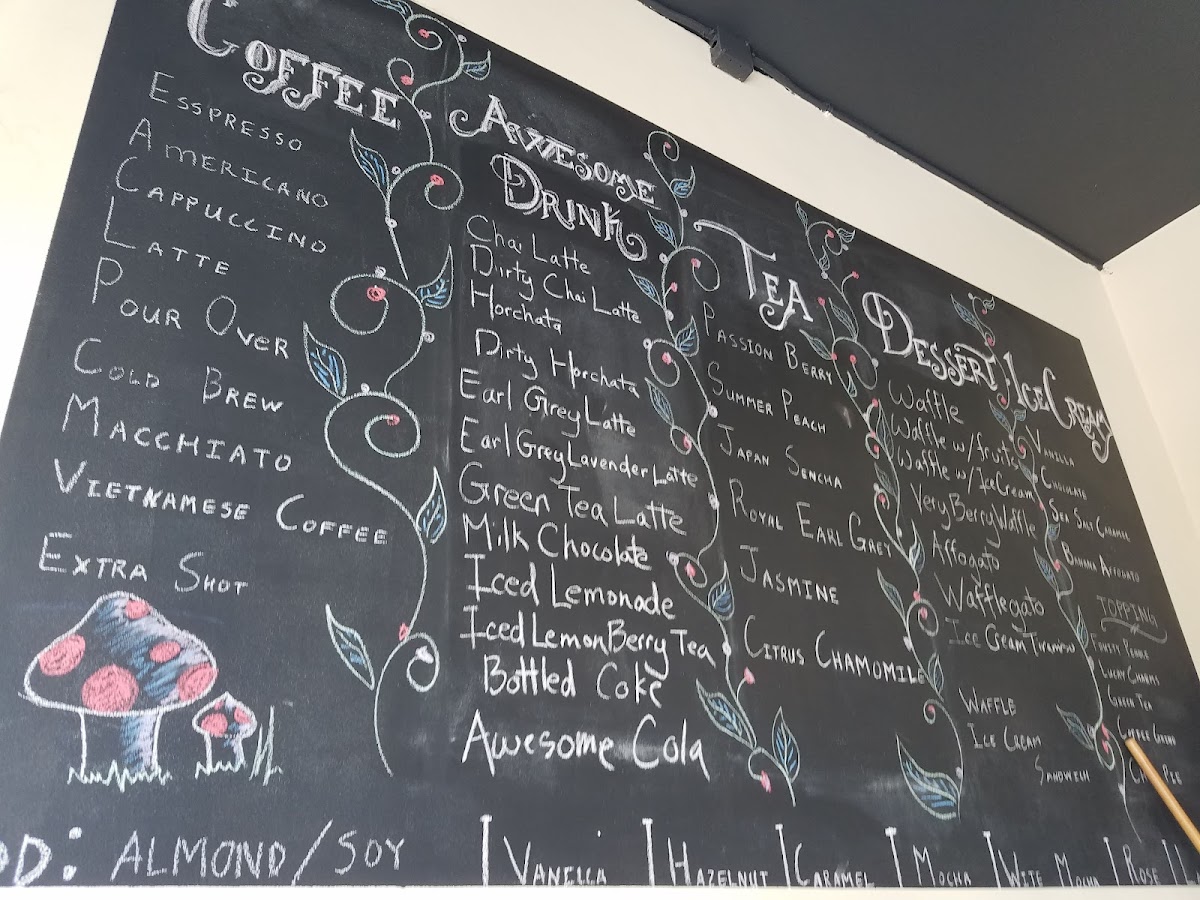 COFFEE
ESSPRESSO
AMERICANO
CAPPUCCINO
LATTE
POUR OVER
COLD BREW
MACCHIATO
VIETNAMESE COFFEE
EXTRA SHOT
AWESOME
DRINK
Chai Latte
Dirty Chai Latte
Horchata
Dirty Horchata
Earl Grey Latte
Earl Grey Lavender Latte
Green Tea Latte
Milk Chocolate
Iced Lemonade
Iced Lemon Berry Tea
Bottled Coke
Awesome Cola
TEA
PASSION BERRY
SUMMER PEACH
JAPAN SENCHA
ROYAL EARL GREY
JASMINE
CITRUS CHAMOMILE
DESSERT/ICE CREAM
Waffle
Waffle w/fruits
Waffle w/Ice Cream
Very Berry Waffle
Affogato
Wafflegato
Ice Cream
WAFFLE
ICE CREAM
SANDWICH
VANILLA
CHOCOLATE
SEA SALT CARAMEL
BANANA AFFOGATO
TOPPING
LUCKY CHARMS
GREEN TEA
OD: ALMOND/SOY
VANILLA
HAZELNUT
CARAMEL
MOCHA
WITE MOCHA
ROSE